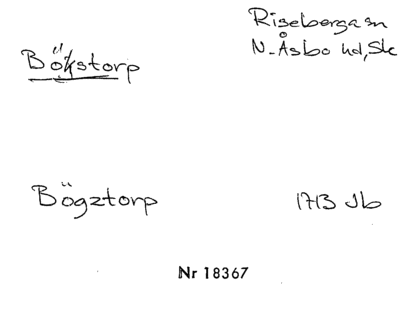 Riseberga sn
N. Åsbo hd, Sk
Bökstorp
Bögztorp
1713 Jb
Nr 18367